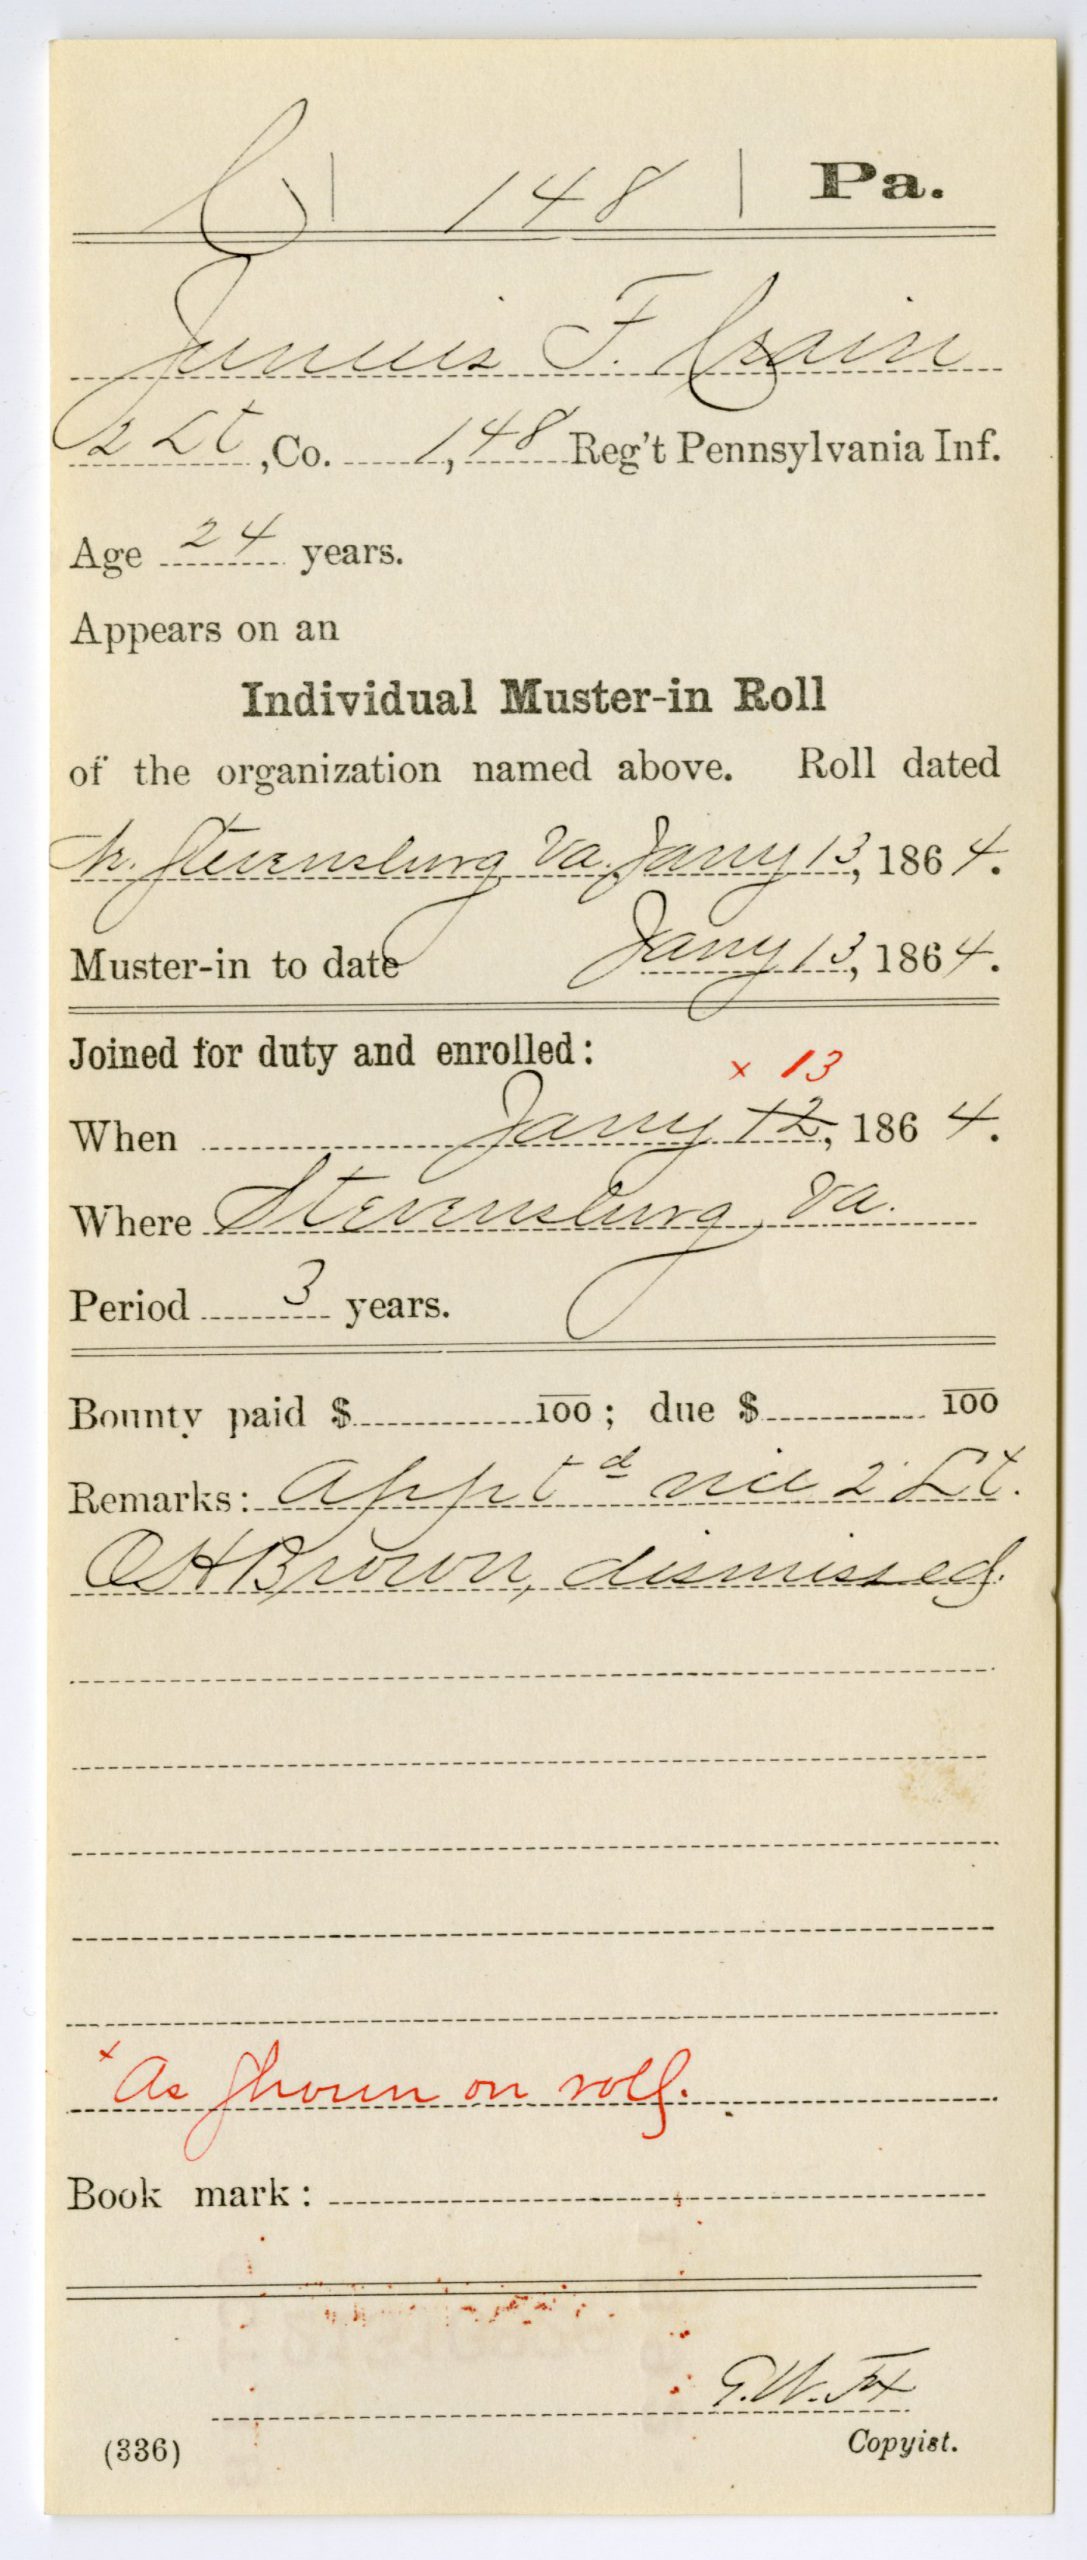 C | 148 | Pa.
Junius F. Crain
2 Lt, Co. 1, 148 Reg't Pennsylvania Inf.
Age 24 years.
Appears on an
Individual Muster-in Roll
of the organization named above. Roll dated
Nr. Stevensburg Va. Jany 13, 1864.
Muster-in to date Jany 13, 1864.
Joined for duty and enrolled:
x 13
When Jany 12, 1864.
Where Stevensburg, Va.
Period 3 years.
Bounty paid $ 100; due $ 100
Remarks: Apptd vice 2 Lt.
O H Brown, dismissed.
x As shown on roll.
Book mark:
G.W.
(336) Copyist.